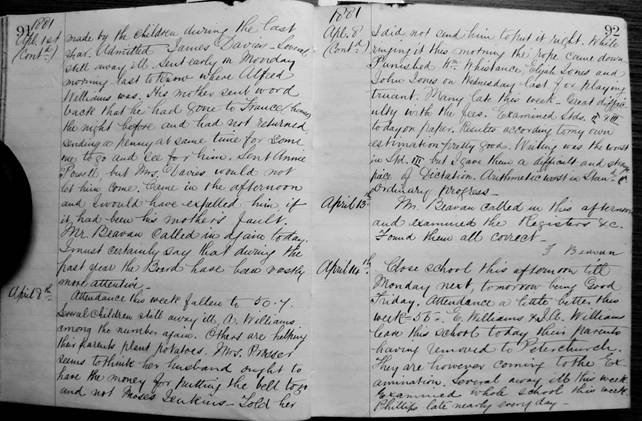 91
1881
Apl. 1st
(Contd)
made by the children during the last
year. Admitted James Davies. Several
still away ill. Sent early on Monday
morning last to know where Alfred
Williams was. His mother sent word
back that he had gone to France
the night before and had not returned
sending a penny at same time for some
one to go and see for him. Sent Annie
Powell but Mrs. Davies would not
let him come. Came in the afternoon
and I would have expelled him if
it had been his mother's fault.
Mr. Beavan called in again today.
I must certainly say that during the
past year the Board have been vastly
more attentive.
April 8th
Attendance this week fallen to 50.7.
Several children still away ill, A. Williams
among the number again. Others are helping
their parents plant potatoes. Mrs. Prosser
seems to think her husband ought to
have the money for putting the bell to go
and not Moses Jenkins. Told her
92
1881
Apl. 8
(Contd)
I did not send him to put it right. While
ringing it this morning the rope came down
Punished Wm. Whistance, Elijah Jones and
John Jones on Wednesday last for playing
truant. Many late this week. Great diffi-
culty with the fees. Examined Stds.
today on paper. Results according to my own
estimation pretty good. Writing was the worst
in Std. III but I gave them a difficult and
piece of Dictation. Arithmetic worst in Stan.
Ordinary progress.
April 13th
Mr. Beavan called in this afternoon
and examined the Registers &c.
Found them all correct.
Beavan
April 14th
Close school this afternoon till
Monday next, tomorrow being Good
Friday. Attendance a little better this
week 55. E. Williams & J.A. Williams
leave this school today their parents
having removed to Peterchurch.
They are however coming to the Ex-
amination. Several away ill this week
Examined whole school this week
Phillips late nearly every day.